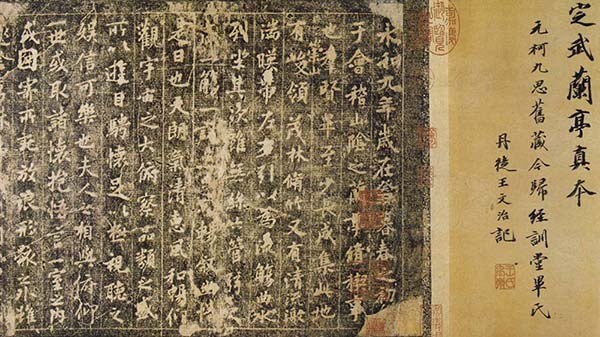 定武蘭亭真本
元柯九思舊藏今歸經訓堂畢氏
丹徒王文治記
永和九年歲在癸丑暮春之初
于會稽山陰之蘭亭脩稧事
也羣賢畢至少長咸集此地
有崇山峻領茂林脩竹又有清流激
湍暎帶左右引以為流觴曲水
列坐其次雖無絲竹管弦之
一觴一詠亦足以暢敘幽情
是日也天朗氣清惠風和暢仰
觀宇宙之大俯察品類之盛
所以遊目騁懷足以極視聽之
娛信可樂也夫人之相與俯仰
一世或取諸懷抱悟言一室之內
或因寄所託放浪形骸之外雖